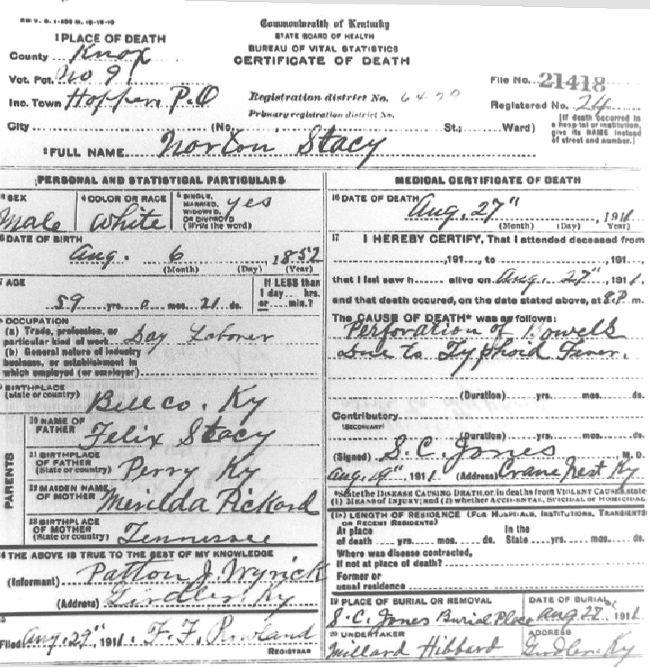 Commonwealth of Kentucky
STATE BOARD OF HEALTH
BUREAU OF VITAL STATISTICS
CERTIFICATE OF DEATH
1 PLACE OF DEATH
County Knox
Vot. Pct. No 9
Inc. Town Hopper P.O
City (No. St.; Ward)
Registration district No. 6470
Primary registration district No.
File No. 21418
Registered No. 24
[If death occurred in
a hospital or institution,
give its NAME instead
of street and number.]
2 FULL NAME Norton Stacy
PERSONAL AND STATISTICAL PARTICULARS
3 SEX
Male
4 COLOR OR RACE
White
5 SINGLE,
MARRIED,
WIDOWED,
OR DIVORCED
(Write the word)
yes
6 DATE OF BIRTH
Aug. 6 1852
(Month) (Day) (Year)
7 AGE
59 yrs. 0 mos. 21 ds.
If LESS than
1 day ... hrs.
or ... min.?
8 OCCUPATION
(a) Trade, profession, or
particular kind of work Day Laborer
(b) General nature of industry
business, or establishment in
which employed (or employer)
9 BIRTHPLACE
(State or country)
Bell co. Ky
PARENTS
10 NAME OF
FATHER
Felix Stacy
11 BIRTHPLACE
OF FATHER
(State or country)
Perry Ky
12 MAIDEN NAME
OF MOTHER
Merilda Pickard
13 BIRTHPLACE
OF MOTHER
(State or country)
Tennessee
14 THE ABOVE IS TRUE TO THE BEST OF MY KNOWLEDGE
(Informant) Patton J. Wyrick
(Address) Girdler Ky
15
Filed Aug. 29" 1911 F. F. Rowland
REGISTRAR
MEDICAL CERTIFICATE OF DEATH
16 DATE OF DEATH
Aug. 27" 1911
(Month) (Day) (Year)
17 I HEREBY CERTIFY, That I attended deceased from
, 191 , to , 191 ,
that I last saw h alive on Aug. 27" , 1911,
and that death occured, on the date stated above, at 8 P. m.
The CAUSE OF DEATH* was as follows:
Perforation of Bowells
Due to Typhoid Fever.
(Duration) yrs. mos. ds.
Contributory
(SECONDARY)
(Duration) yrs. mos. ds.
(Signed) S. C. Jones M. D.
1911 (Address) Crane Nest Ky
*State the DISEASE CAUSING DEATH, or, in deaths from VIOLENT CAUSES, state
(1) MEANS OF INJURY; and (2) whether ACCIDENTAL, SUICIDAL or HOMICIDAL
18 LENGTH OF RESIDENCE (FOR HOSPITALS, INSTITUTIONS, TRANSIENTS
OR RECENT RESIDENTS)
At place
of death yrs. mos. ds.
In the
State yrs. mos. ds.
Where was disease contracted,
if not at place of death?
Former or
usual residence
19 PLACE OF BURIAL OR REMOVAL
S. C. Jones Burial Place
DATE OF BURIAL
1911
20 UNDERTAKER
Millard Hibbard
ADDRESS
Girdler, Ky